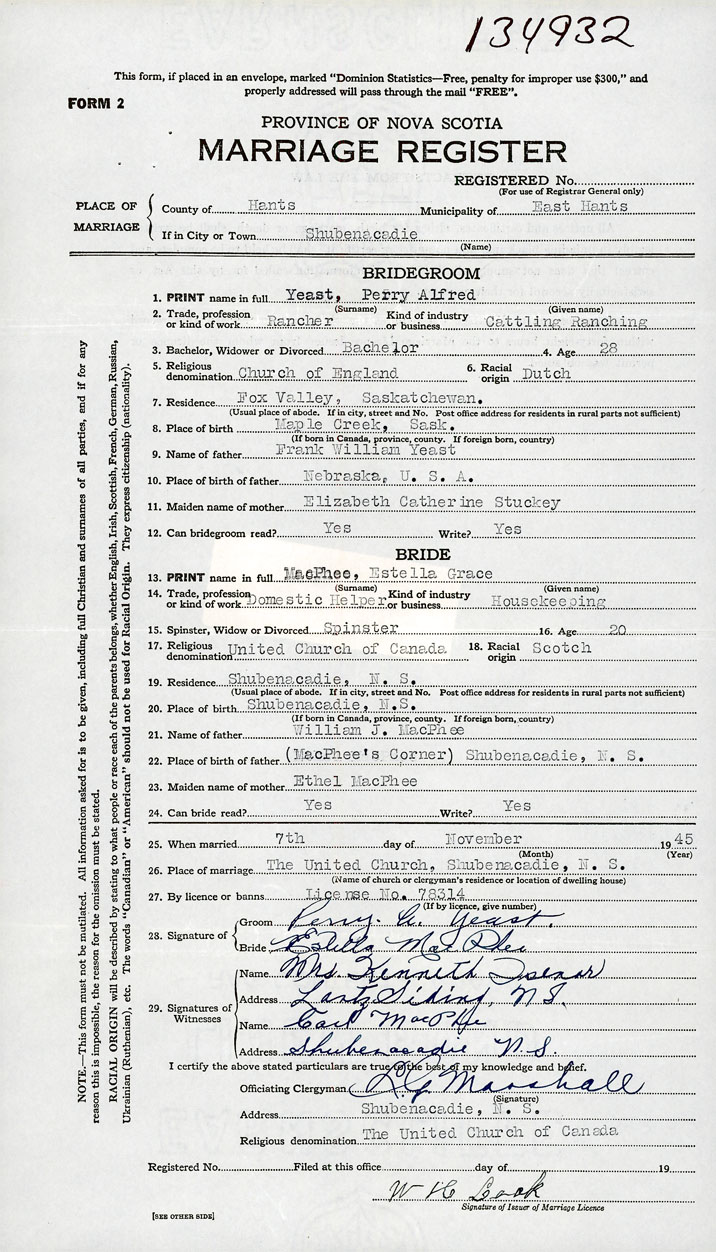 134932
This form, if placed in an envelope, marked "Dominion Statistics—Free, penalty for improper use $300," and
properly addressed will pass through the mail "FREE".
FORM 2
PROVINCE OF NOVA SCOTIA
MARRIAGE REGISTER
REGISTERED No.
(For use of Registrar General only)
PLACE OF MARRIAGE
County of Hants Municipality of East Hants
If in City or Town Shubenacadie
(Name)
BRIDEGROOM
1. PRINT name in full Yeast, Perry Alfred
(Surname) (Given name)
2. Trade, profession or kind of work Rancher Kind of industry or business Cattling Ranching
3. Bachelor, Widower or Divorced Bachelor 4. Age 28
5. Religious denomination Church of England 6. Racial origin Dutch
7. Residence Fox Valley, Saskatchewan.
(Usual place of abode. If in city, street and No. Post office address for residents in rural parts not sufficient)
8. Place of birth Maple Creek, Sask.
(If born in Canada, province, county. If foreign born, country)
9. Name of father Frank William Yeast
10. Place of birth of father Nebraska, U. S. A.
11. Maiden name of mother Elizabeth Catherine Stuckey
12. Can bridegroom read? Yes Write? Yes
BRIDE
13. PRINT name in full MacPhee, Estella Grace
(Surname) (Given name)
14. Trade, profession or kind of work Domestic Helper Kind of industry or business Housekeeping
15. Spinster, Widow or Divorced Spinster 16. Age 20
17. Religious denomination United Church of Canada 18. Racial origin Scotch
19. Residence Shubenacadie, N. S.
(Usual place of abode. If in city, street and No. Post office address for residents in rural parts not sufficient)
20. Place of birth Shubenacadie, N.S.
(If born in Canada, province, county. If foreign born, country)
21. Name of father William J. MacPhee
22. Place of birth of father (MacPhee's Corner) Shubenacadie, N. S.
23. Maiden name of mother Ethel MacPhee
24. Can bride read? Yes Write? Yes
25. When married 7th day of November 1945
(Month) (Year)
26. Place of marriage The United Church, Shubenacadie, N. S.
(Name of church or clergyman's residence or location of dwelling house)
27. By licence or banns License No. 78314
(If by licence, give number)
28. Signature of
Groom Perry A. Yeast.
Bride Estella MacPhee
29. Signatures of Witnesses
Name Mrs. Kenneth Isenor
Address Lantz Siding, N.S.
Name Carl MacPhee
Address Shubenacadie N.S.
I certify the above stated particulars are true to the best of my knowledge and belief.
Officiating Clergyman Marshall
(Signature)
Address Shubenacadie, N. S.
Religious denomination The United Church of Canada
Registered No. Filed at this office day of 19
W H Cook
Signature of Issuer of Marriage Licence
[SEE OTHER SIDE]
NOTE.—This form must not be mutilated. All information asked for is to be given, including full Christian and surnames of all parties, and if for any
reason this is impossible, the reason for the omission must be stated.
RACIAL ORIGIN will be described by stating to what people or race each of the parents belongs, whether English, Irish, Scottish, French, German, Russian,
Ukrainian (Ruthenian), etc. The words "Canadian" or "American" should not be used for Racial Origin. They express citizenship (nationality).